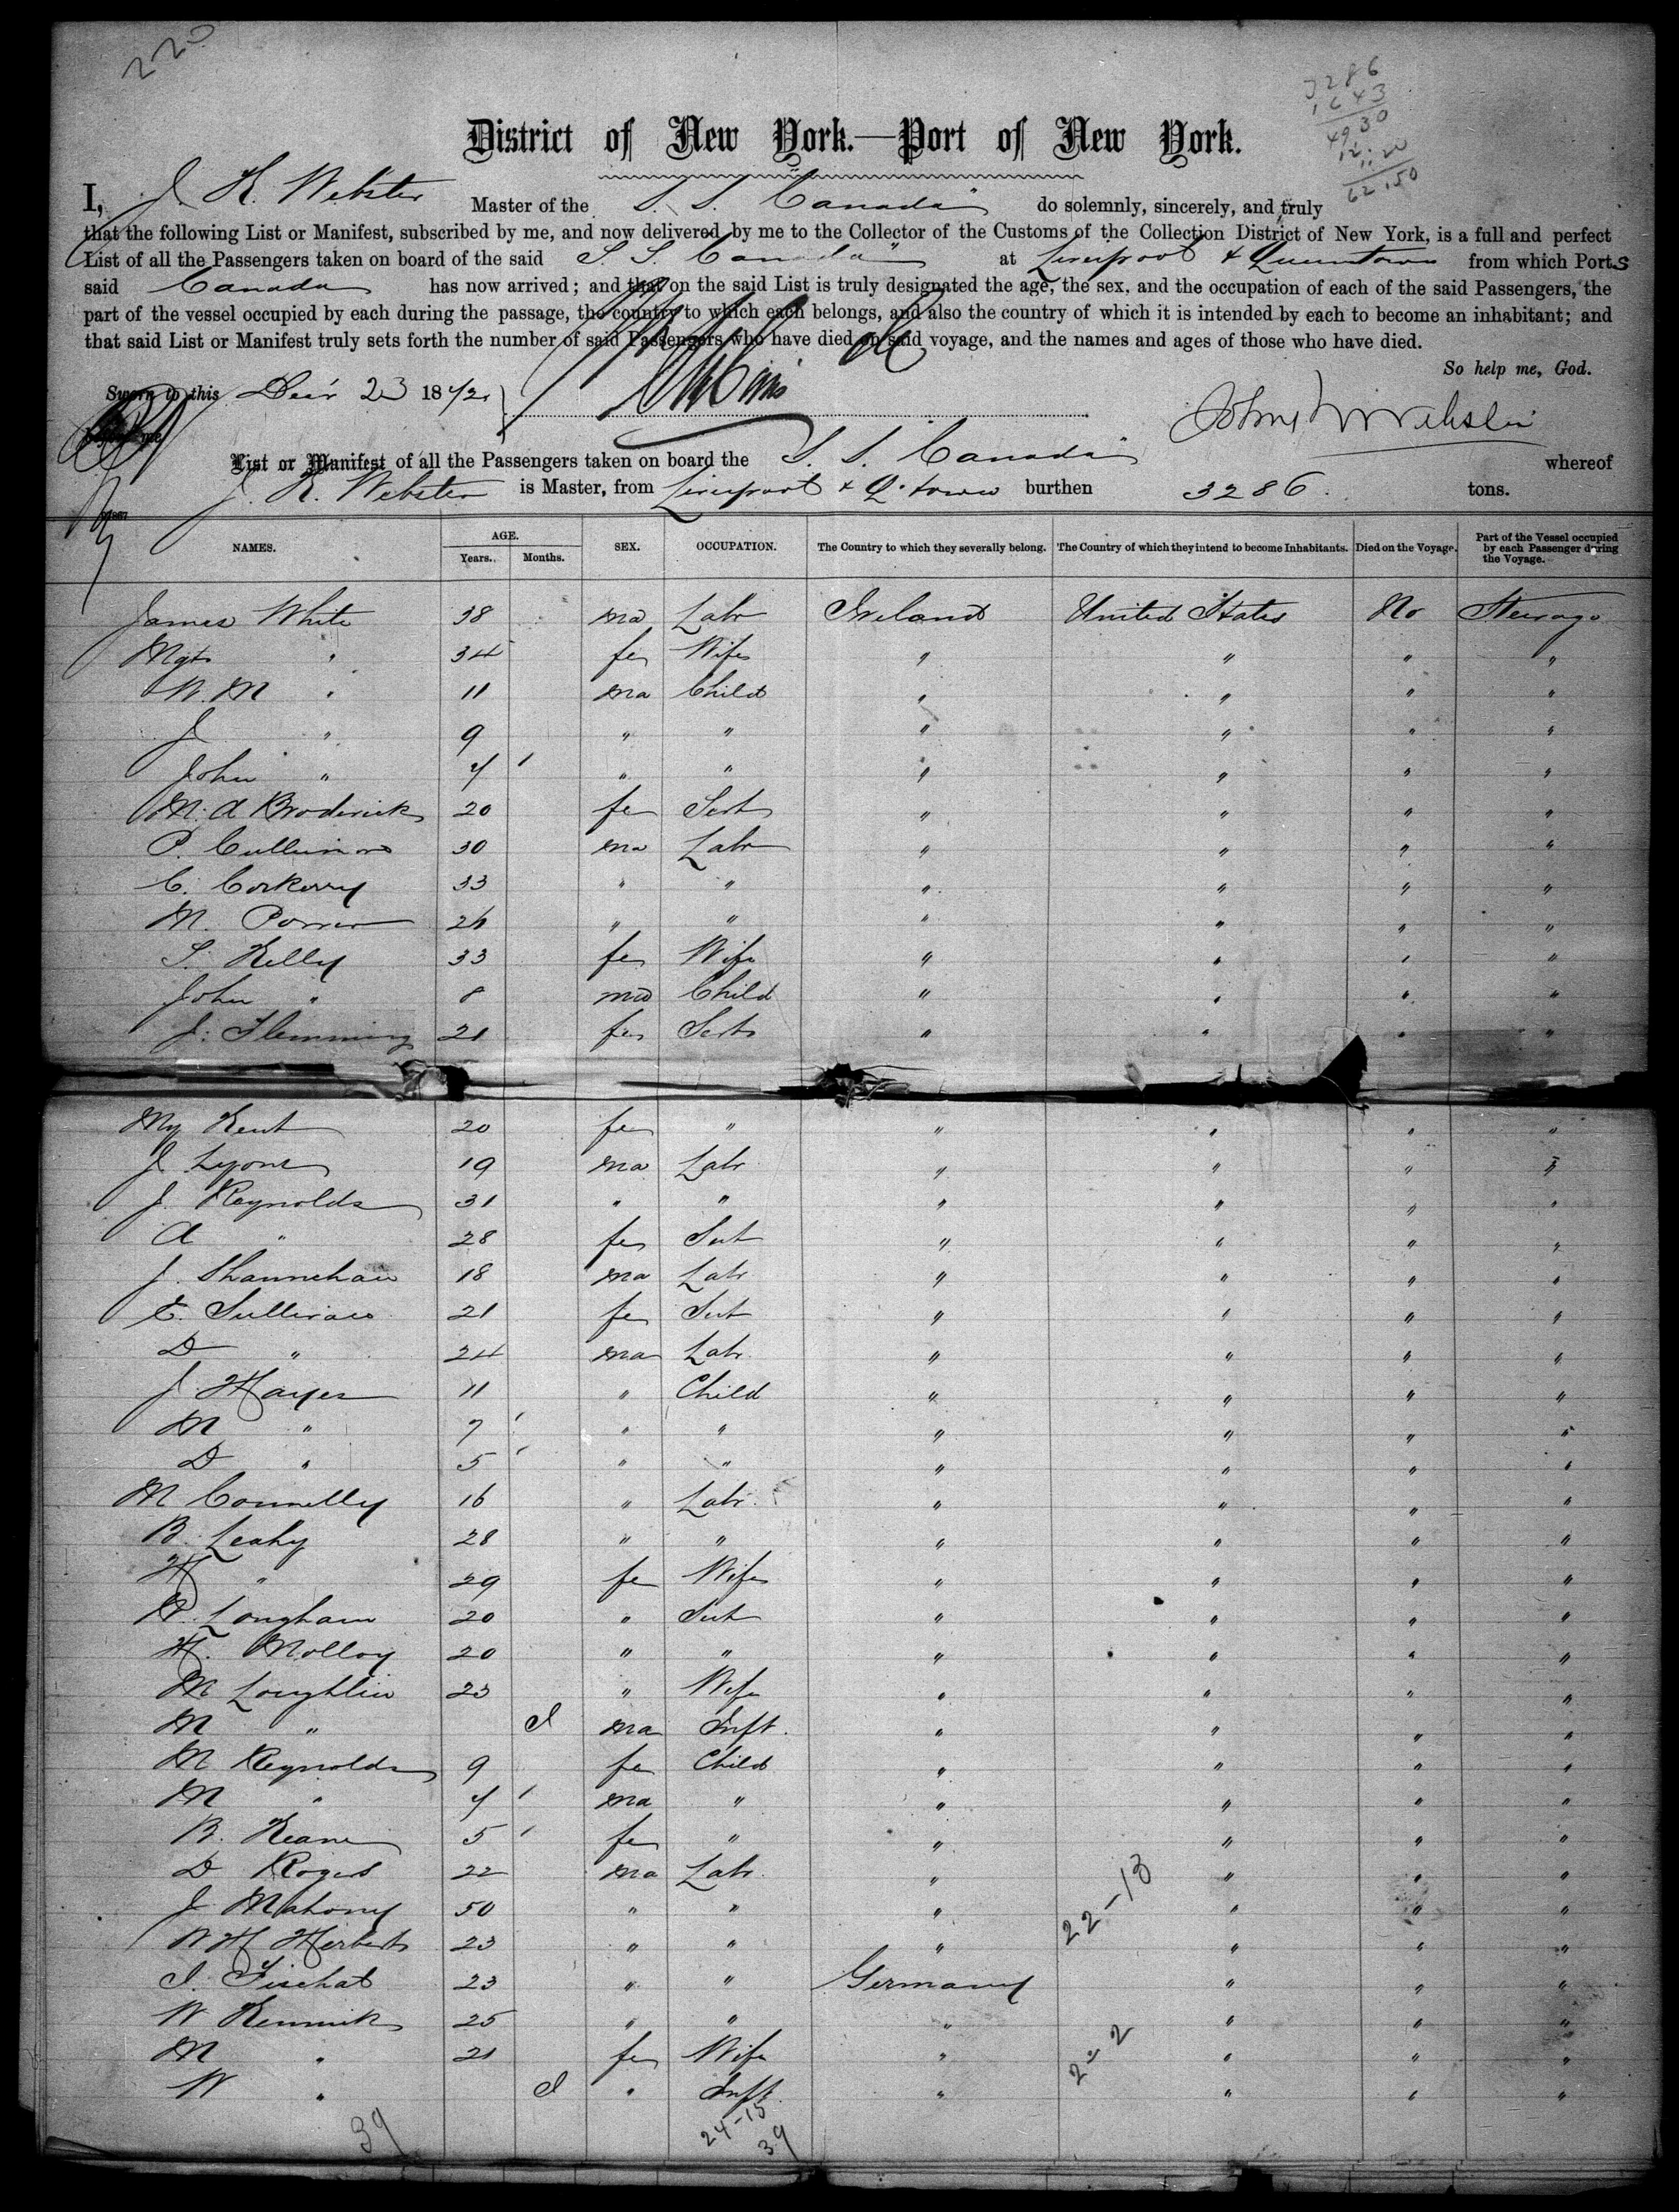 220
3286
1643
4930
12.20
62.150
District of New York.—Port of New York.
I, J. H. Webster Master of the S. S. "Canada" do solemnly, sincerely, and truly
that the following List or Manifest, subscribed by me, and now delivered by me to the Collector of the Customs of the Collection District of New York, is a full and perfect
List of all the Passengers taken on board of the said S. S. "Canada" at Liverpool & Queenstown from which Ports
said Canada has now arrived; and that on the said List is truly designated the age, the sex, and the occupation of each of the said Passengers, the
part of the vessel occupied by each during the passage, the country to which each belongs, and also the country of which it is intended by each to become an inhabitant; and
that said List or Manifest truly sets forth the number of said Passengers who have died on said voyage, and the names and ages of those who have died.
So help me, God.
Sworn to this 23 18
me
List or Manifest of all the Passengers taken on board the S. S. "Canada" whereof
J. H. Webster is Master, from Liverpool & Q.town burthen 3286. tons.
NAMES. AGE. Years. Months. SEX. OCCUPATION. The Country to which they severally belong. The Country of which they intend to become Inhabitants. Died on the Voyage. Part of the Vessel occupied by each Passenger during the Voyage.
James White 38 ma Labr Ireland United States No Steerage
Mgt " 34 fe Wife " " " "
W. M " 11 ma Child " " " "
J " 9 " " " " " "
John " 4 ' " " " " " "
M. A Broderick 20 fe Sert " " " "
P. Cullinan 30 ma Labr " " " "
C. Corkerry 33 " " " " " "
M. Power 26 " " " " " "
S. Kelly 33 fe Wife " " " "
John " 8 ma Child " " " "
J. Flemming 21 fe Sert " " " "
My Kent 20 fe " " " " "
J Lyons 19 ma Labr " " " "
J. Reynolds 31 " " " " " "
A " 28 fe Sert " " " "
J. Shannehan 18 ma Labr " " " "
E. Sullivan 21 fe Sert " " " "
D " 24 ma Labr " " " "
J Hayes 11 " Child " " " "
M " 7 ' " " " " " "
D " 5 ' " " " " " "
M Connelly 16 " Labr " " " "
B. Leahy 28 " " " " " "
H " 29 fe Wife " " " "
Longham 20 " Sert " " " "
H. Molloy 20 " " " " " "
M Loughlin 23 " Wife " " " "
M " I ma Inft. " " " "
M Reynolds 9 fe Child " " " "
M " 4 ' ma " " " " "
B. Keane 5 ' fe " " " " "
D Rogers 22 ma Labr. " " " "
J Mahony 50 " " " " " "
22-13
W H Herbert 23 " " " " " "
I. Fischat 23 " " Germany " " "
W Kennick 25 " " " " " "
M " 21 fe Wife " " " "
2-2
W " I " Inft. " " " "
39
24-15
39